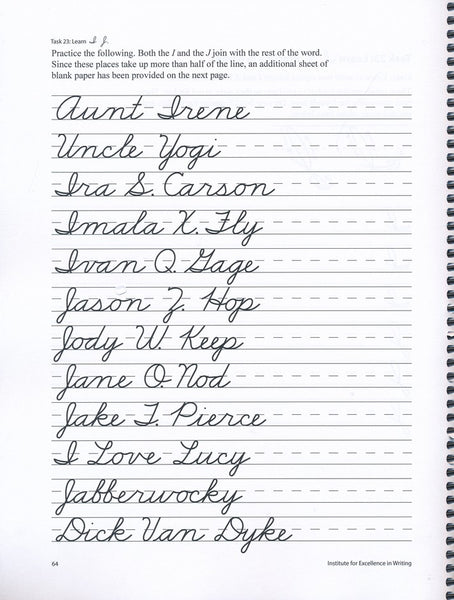 Task 23: Learn I J.
Practice the following. Both the I and the J join with the rest of the word.
Since these places take up more than half of the line, an additional sheet of
blank paper has been provided on the next page.
Aunt Irene
Uncle Yogi
Ira S. Carson
Imala X. Fly
Ivan Q. Gage
Jason Z. Hop
Jody W. Keep
Jane O. Nod
Jake T. Pierce
I Love Lucy
Jabberwocky
Dick Van Dyke
64 Institute for Excellence in Writing